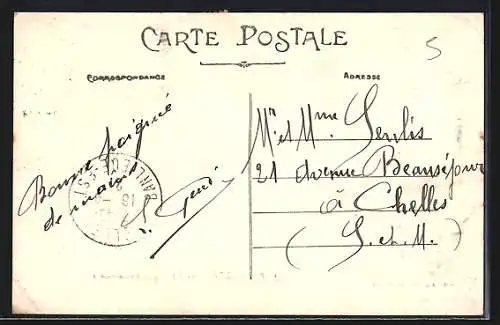 CARTE POSTALE
5
CORRESPONDANCE
ADRESSE
Bonne poignée
de main
Mr et Mme Senlis
21 Avenue Beauséjour
à Chelles
(S. et. M.)